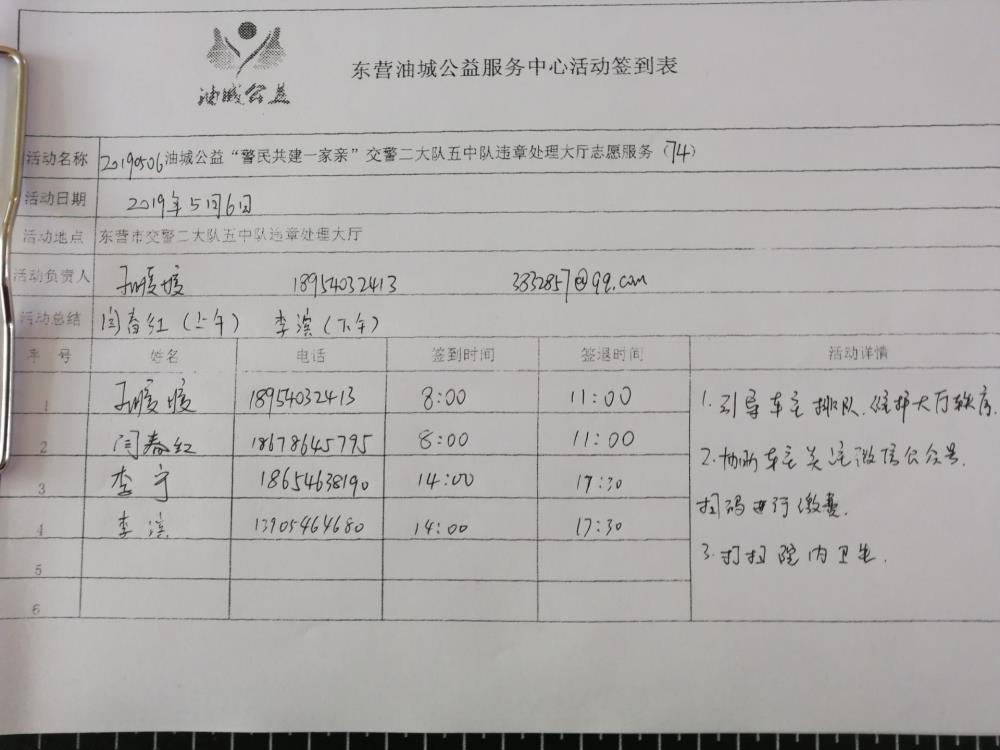 油城公益
东营油城公益服务中心活动签到表
活动名称 20190506油城公益“警民共建一家亲”交警二大队五中队违章处理大厅志愿服务（74）
活动日期 2019年5月6日
活动地点 东营市交警二大队五中队违章处理大厅
活动负责人 18954032413 3832857@qq.com
活动总结 闫春红（上午） 李滨（下午）
序号 姓名 电话 签到时间 签退时间 活动详情
1 18954032413 8:00 11:00
2 闫春红 18678645795 8:00 11:00
3 李宁 18654638190 14:00 17:30
4 李滨 13905464680 14:00 17:30
5
6
1.引导车主排队,维护大厅秩序.
2.协助车主关注微信公众号,
扫码进行缴费.
3.打扫院内卫生.